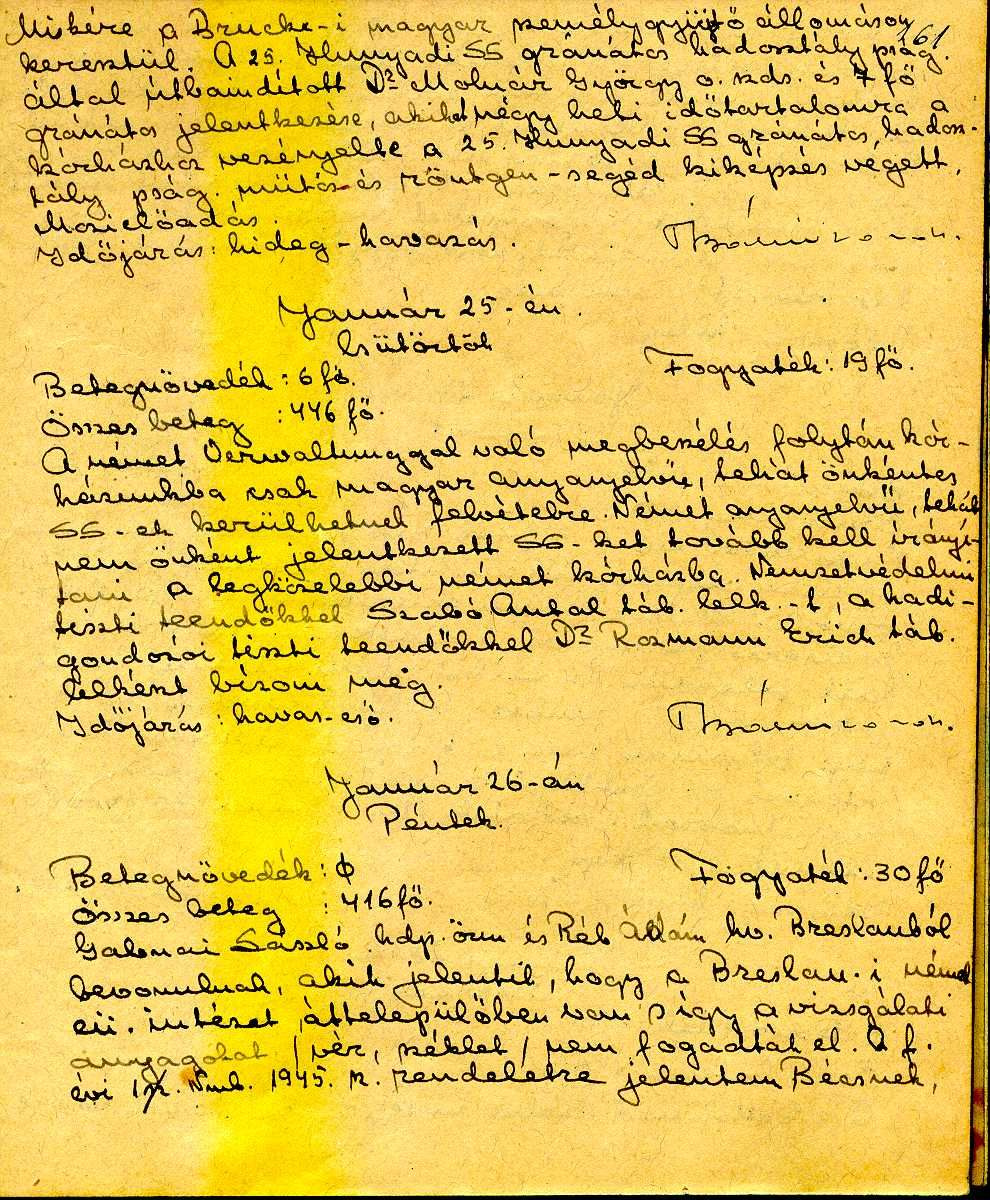 Mikére a Brucke-i magyar személygyüjtő állomáson
161
keresztül. A 25. Hunyadi SS gránátos hadosztály pság.
által útbaindított Dr Molnár György o. zds. és 7 fő
gránátos jelentkezése, akiket négy heti időtartalomra a
kórházhoz vezényelte a 25. Hunyadi SS gránátos hadosz-
tály pság. műtős és röntgen-segéd kiképzés végett.
Mozielőadás.
Időjárás: hideg-havazás.
Január 25-én.
Csütörtök
Betegnövedék: 6 fő.
Fogyaték: 19 fő.
Összes beteg : 446 fő.
A német Verwaltunggal való megbeszélés folytán kór-
házunkba csak magyar anyanyelvü, tehát önkéntes
SS-ek kerülhetnek felvételre. Német anyanyelvü, tehát
nem önként jelentkezett SS-ket tovább kell irányi-
tani a legközelebbi német kórházba. Nemzetvédelmi
tiszti teendőkkel Szabó Antal táb. lelk.-t, a hadi-
gondozói tiszti teendőkkel Dr Rozmann Erich táb.
lelkészt bízom meg.
Időjárás: havas-eső.
Január 26-án
Péntek.
Betegnövedék: Φ
Fogyaték: 30 fő
Összes beteg : 416 fő.
László hdp. örm és Réb Ádám hv. Breslauból
bevonulnak, akik jelentik, hogy a Breslau-i német
eü. intézet áttelepülőben van s így a vizsgálati
anyagokat /vér, széklet/ nem fogadták el. A f.
évi 1945. sz. rendeletre jelentem Bécsnek,